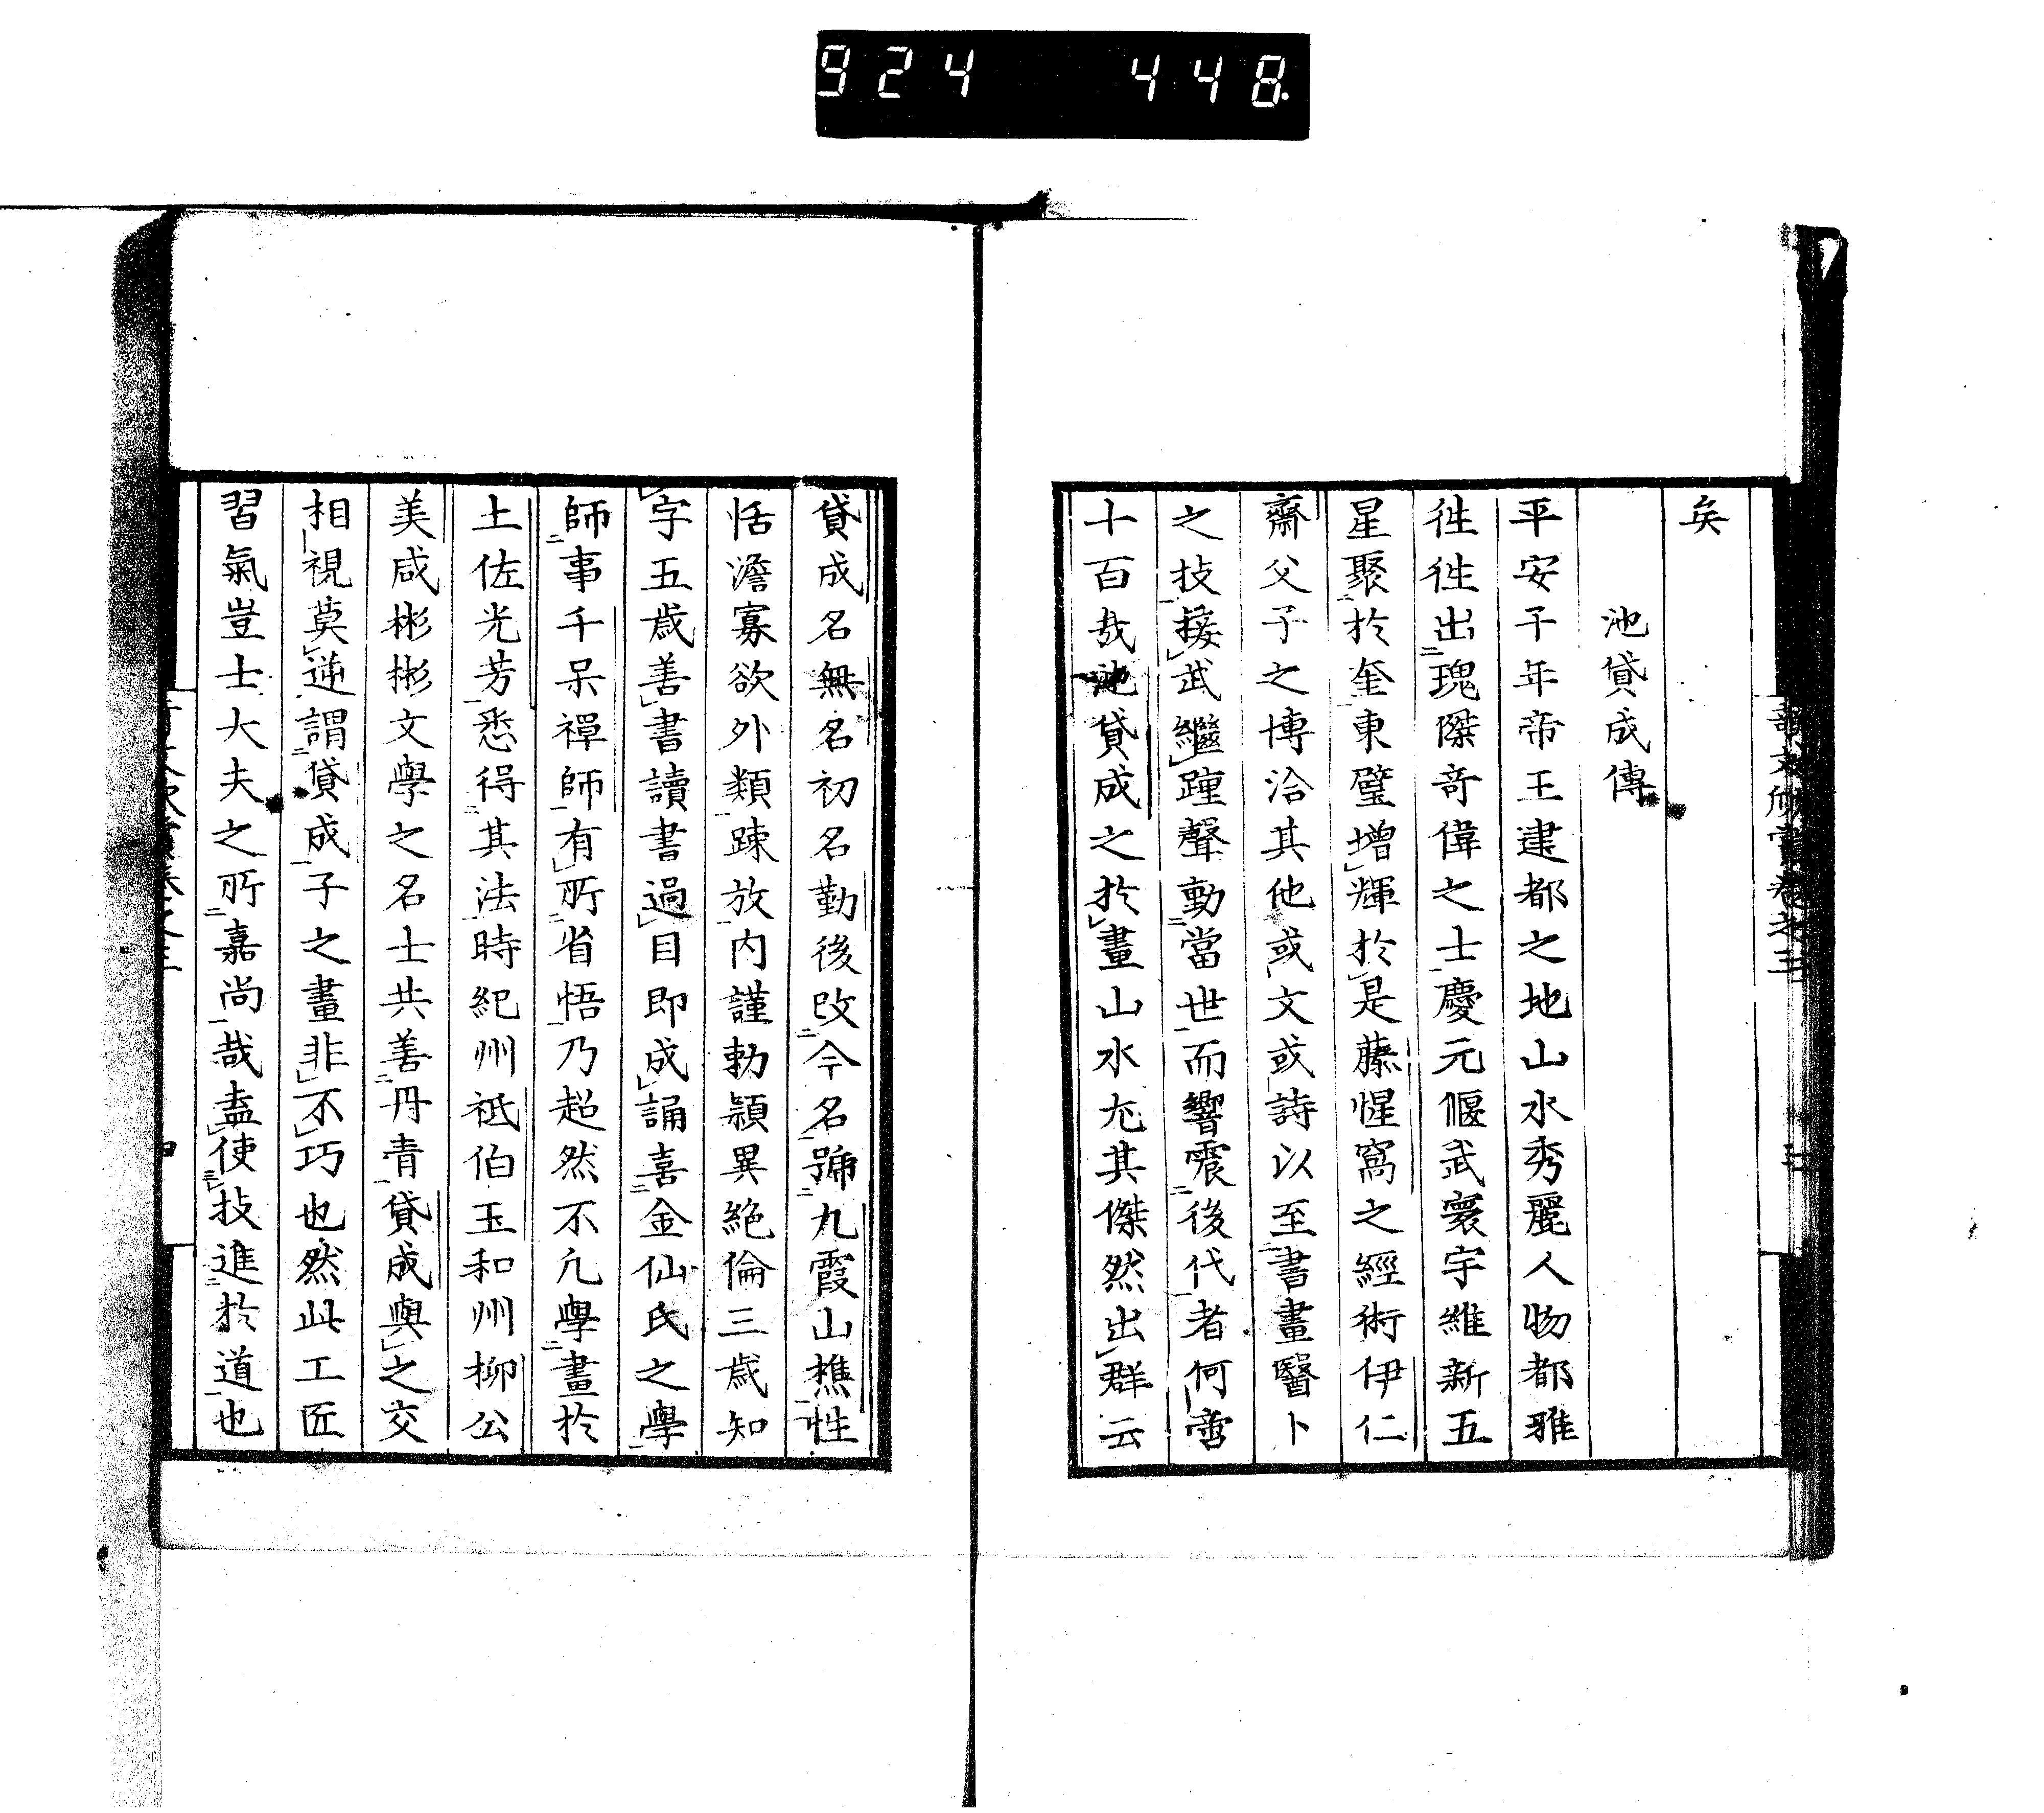 924 448
矣
池貸成傳
平安千年帝王建都之地山水秀麗人物都雅
徃徃出瑰傑奇偉之士慶元偃武寰宇維新五
星聚於奎東璧增輝於是藤惺窩之經術伊仁
齋父子之博洽其他或文或詩以至書畫醫卜
之技接武繼踵聲動當世而響震後代者何啻
十百哉池貸成之於畫山水尤其傑然出群云
貸成名無名初名勤後改今名號九霞山樵性
恬澹寡欲外類踈放內謹勅頴異絶倫三歲知
字五歲善書讀書過目即成誦喜金仙氏之學
師事千呆禪師有所省悟乃超然不凡學畫於
土佐光芳悉得其法時紀州祗伯玉和州柳公
美咸彬彬文學之名士共善丹青貸成與之交
相視莫逆謂貸成子之畫非不巧也然此工匠
習氣豈士大夫之所嘉尚哉盍使技進於道也